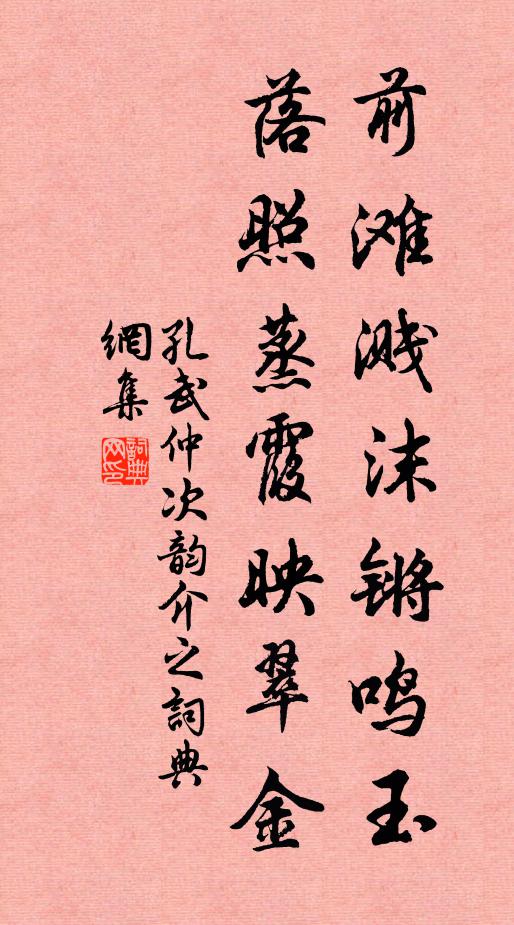 前滩溅沫锵鸣玉
落照蒸霞映翠金
孔武仲次韵介之詞典
網集
詞典
网印